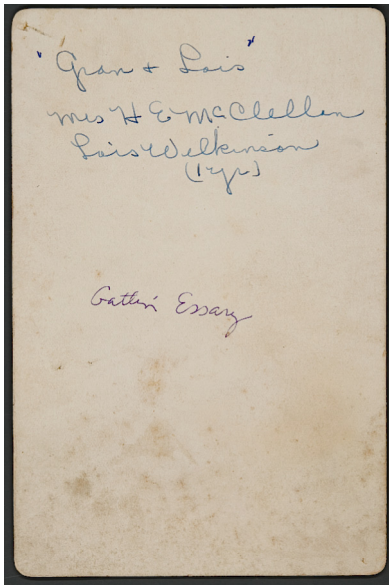 "Gran + Lois"
Mrs H E McClellen
Lois Wilkinson
(1 yr)
Gatlin Essary